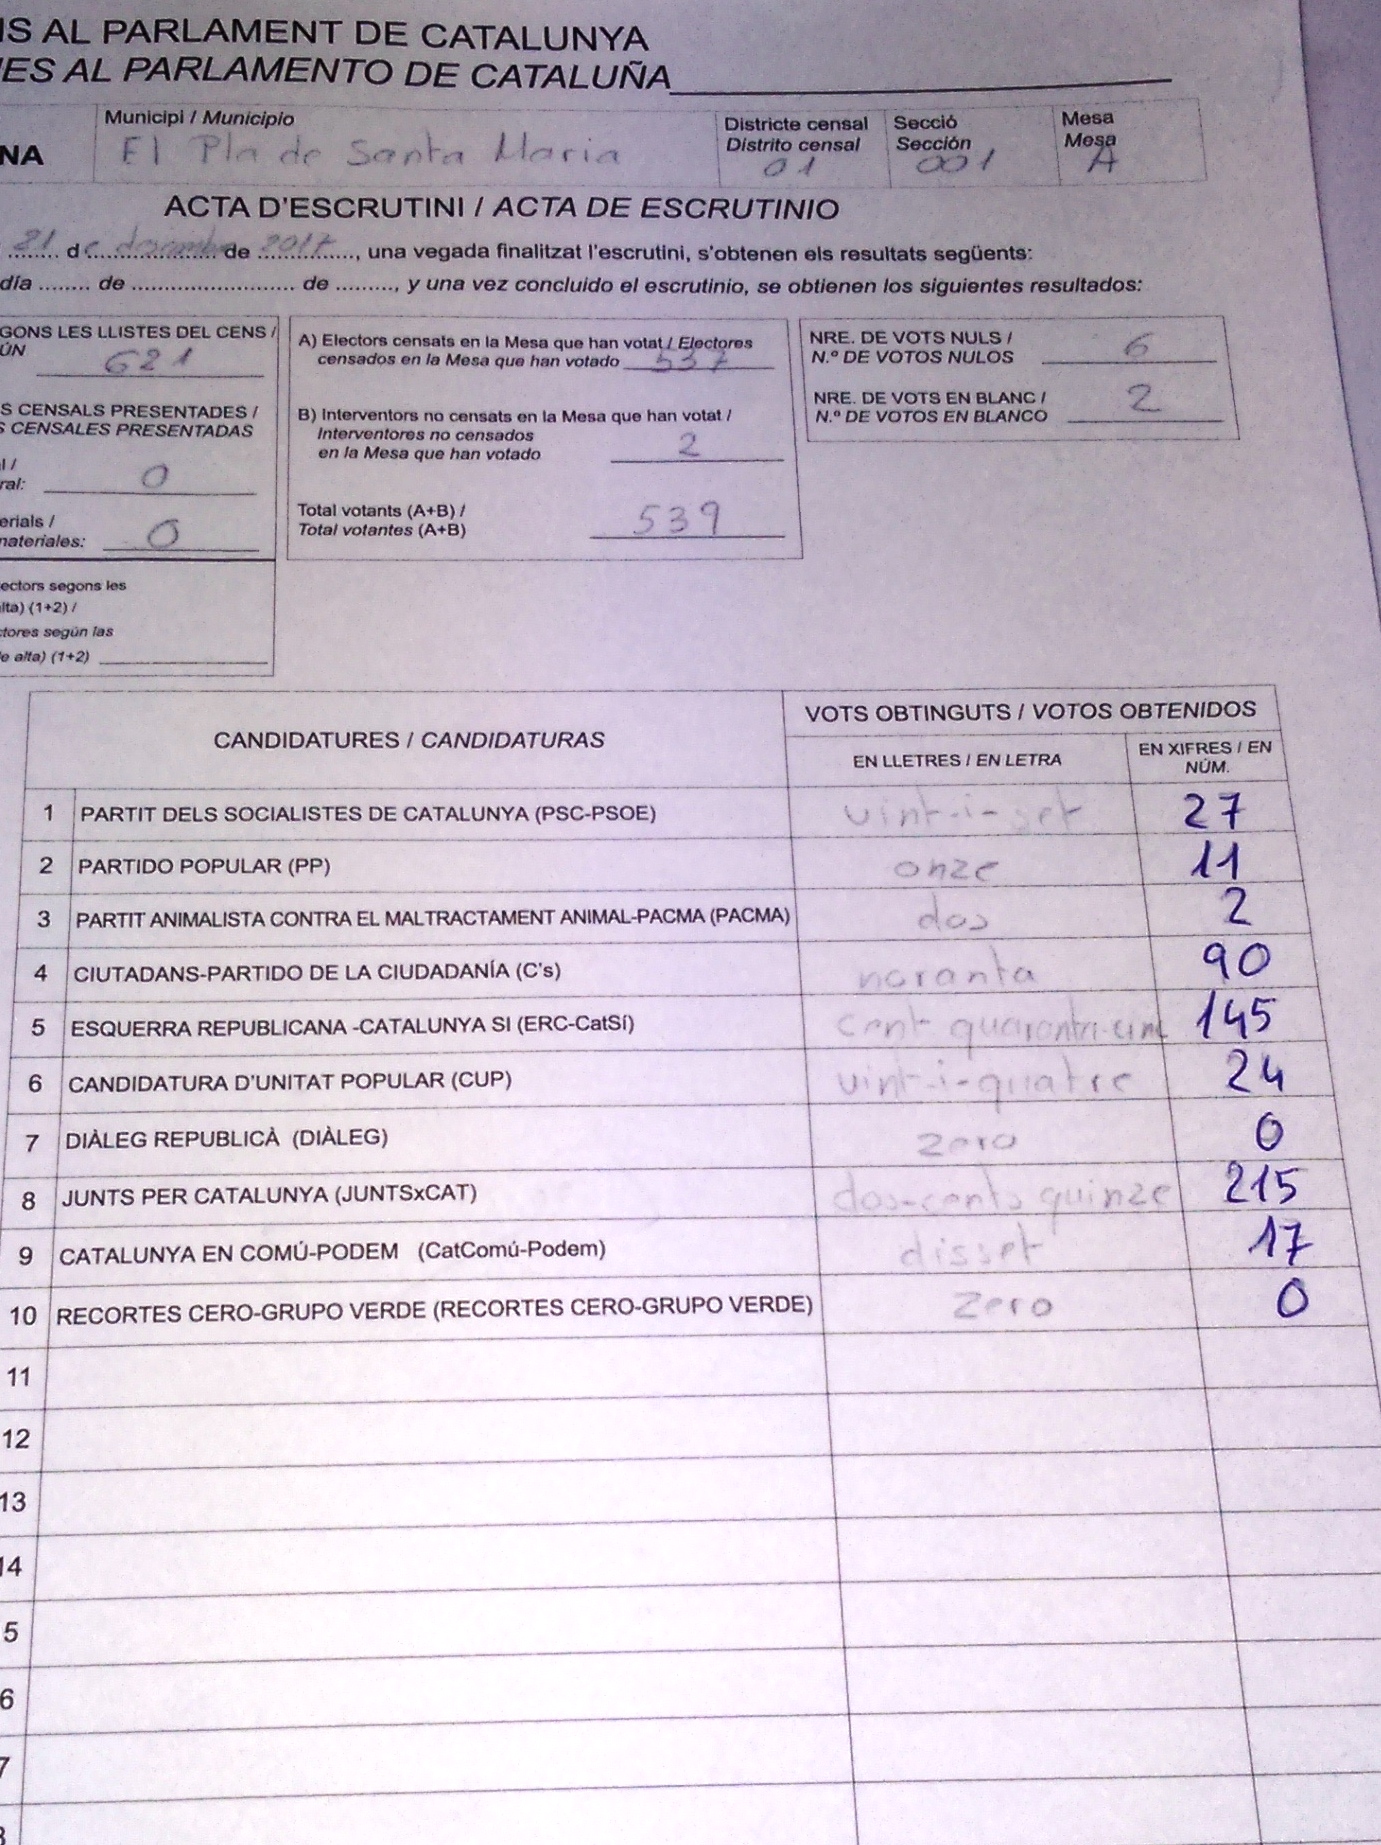 IS AL PARLAMENT DE CATALUNYA
ES AL PARLAMENTO DE CATALUÑA
NA
Municipi / Municipio
El Pla de Santa Maria
Districte censal
Distrito censal
01
Secció
Sección
001
Mesa
Mesa
A
ACTA D'ESCRUTINI / ACTA DE ESCRUTINIO
21 de desembre de 2017, una vegada finalitzat l'escrutini, s'obtenen els resultats següents:
día ........ de ......................... de ........., y una vez concluido el escrutinio, se obtienen los siguientes resultados:
GONS LES LLISTES DEL CENS /
ÚN
621
S CENSALS PRESENTADES /
S CENSALES PRESENTADAS
l /
ral: 0
erials /
materiales: 0
ectors segons les
lta) (1+2) /
ctores según las
e alta) (1+2)
A) Electors censats en la Mesa que han votat / Electores
censados en la Mesa que han votado 537
B) Interventors no censats en la Mesa que han votat /
Interventores no censados
en la Mesa que han votado 2
Total votants (A+B) /
Total votantes (A+B) 539
NRE. DE VOTS NULS /
N.º DE VOTOS NULOS 6
NRE. DE VOTS EN BLANC /
N.º DE VOTOS EN BLANCO 2
CANDIDATURES / CANDIDATURAS
VOTS OBTINGUTS / VOTOS OBTENIDOS
EN LLETRES / EN LETRA
EN XIFRES / EN
NÚM.
1 PARTIT DELS SOCIALISTES DE CATALUNYA (PSC-PSOE) vint-i-set 27
2 PARTIDO POPULAR (PP) onze 11
3 PARTIT ANIMALISTA CONTRA EL MALTRACTAMENT ANIMAL-PACMA (PACMA) dos 2
4 CIUTADANS-PARTIDO DE LA CIUDADANÍA (C's) noranta 90
5 ESQUERRA REPUBLICANA -CATALUNYA SI (ERC-CatSí) cent quaranta-cinc 145
6 CANDIDATURA D'UNITAT POPULAR (CUP) vint-i-quatre 24
7 DIÀLEG REPUBLICÀ (DIÀLEG) zero 0
8 JUNTS PER CATALUNYA (JUNTSxCAT) dos-cents quinze 215
9 CATALUNYA EN COMÚ-PODEM (CatComú-Podem) disset 17
10 RECORTES CERO-GRUPO VERDE (RECORTES CERO-GRUPO VERDE) zero 0
11
12
13
14
5
6
7